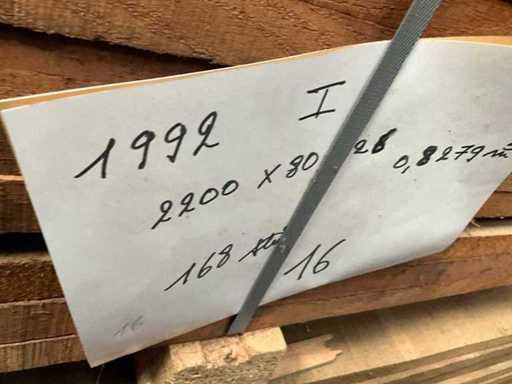 1992 I
2200 x 80 x 28 0,8279 m
168 stk
16
16